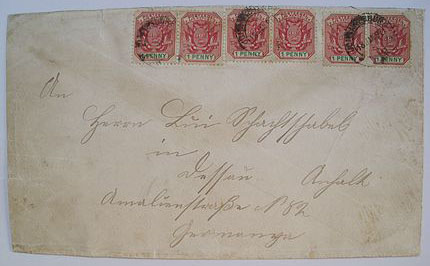 1 PENNY 1 PENNY 1 PENNY 1 PENNY 1 PENNY 1 PENNY
An
Herrn Lui Schachtschabel
in
Dessau Anhalt
Amalienstraße No 82
Germanye